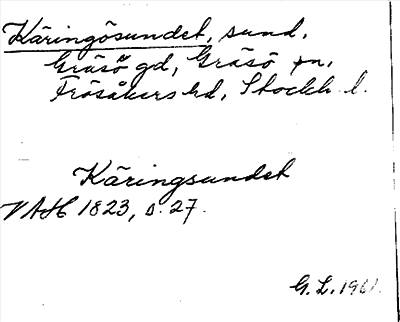 Käringösundet, sund,
Gräsö gd, Gräsö sn,
Frösåkers hd, Stockh. l.
Käringsundet
VAH 1823, s. 27.
G. L. 1961.